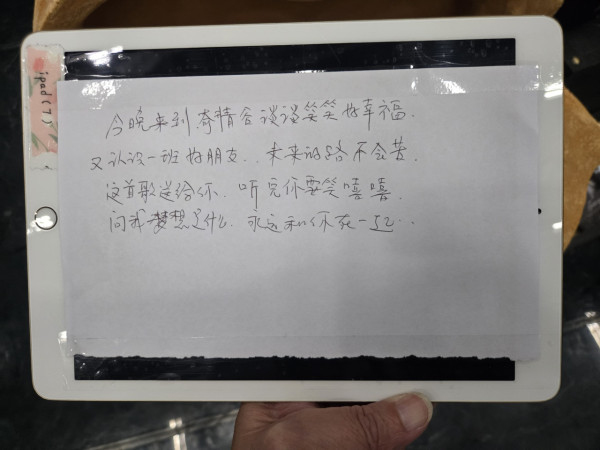 ipad(7)
今晚来到奔精舍谈谈笑笑好幸福.
又认识一班好朋友..未来的路不会苦.
这首歌送给你.听完你要笑嘻嘻.
问我梦想是什么.永远和你在一起..